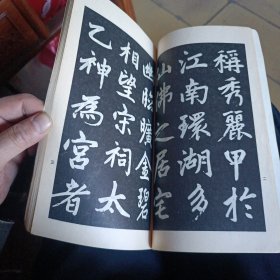 稱秀麗甲於
江南環湖多
仙佛之居宅
幽眺曠金碧
相望宋祠太
乙神為宮者